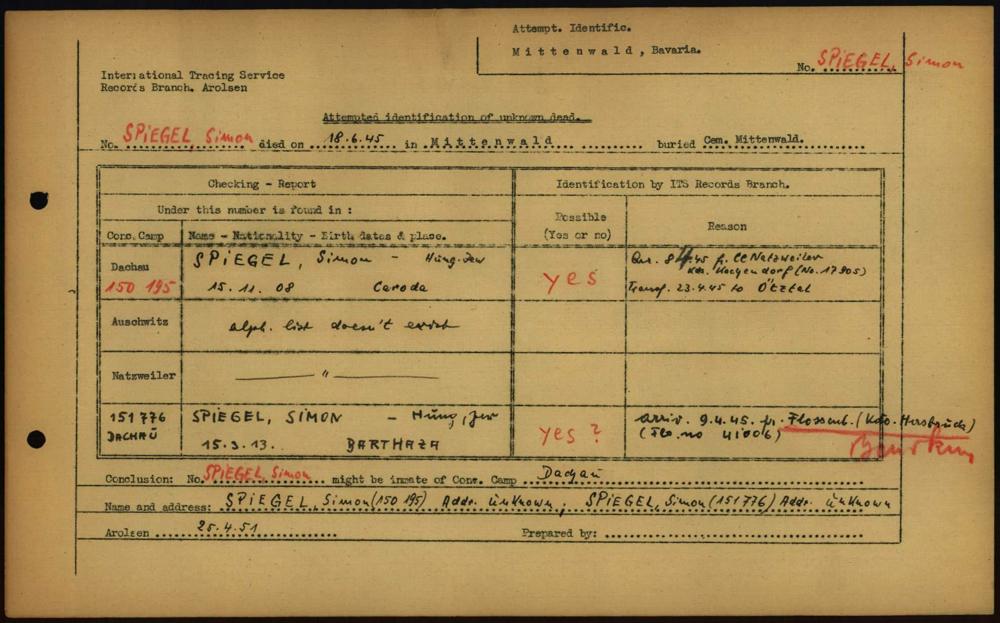 Attempt. Identific.
Mittenwald, Bavaria.
No. SPIEGEL, Simon
International Tracing Service
Records Branch. Arolsen
Attempted identification of unknown dead.
No. SPIEGEL, Simon died on 18.6.45 in Mittenwald buried Cem. Mittenwald.
Checking - Report
Identification by ITS Records Branch.
Under this number is found in :
Possible
(Yes or no)
Reason
Conc. Camp
Name - Nationality - Birth dates & place.
Dachau
150 195
SPIEGEL, Simon - Hung. Jew
15.11.08 Caroda
yes
Arr. 8.4.45 fr. CC Natzweiler
Kdo. Kochendorf (No. 17905)
Transf. 23.4.45 to Ötztal
Auschwitz
alph. list doesn't exist
Natzweiler
— " —
151776
DACHAU
SPIEGEL, SIMON - Hung, Jew
15.3.13. BARTHAZA
yes ?
arriv. 9.4.45. fr. Flossenb. (Kdo. Hersbruck)
(Flo. no 41006)
Conclusion: No. SPIEGEL, Simon might be inmate of Conc. Camp Dachau
Name and address: SPIEGEL, Simon (150 195) Addr. unknown, SPIEGEL, Simon (151776) Addr. unknown
Arolsen 25.4.51 Prepared by: